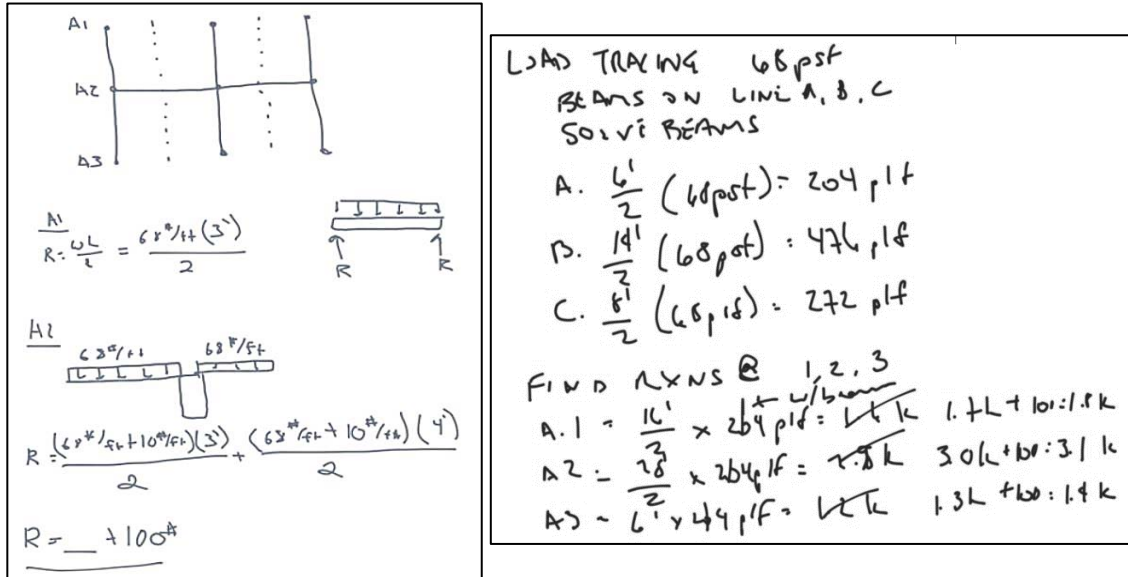 A1
A2
A3
A1
R = ωL/2 = 68#/ft (3')/2
R R
A2
68#/ft 68#/ft
R = (68#/ft + 10#/ft)(3')/2 + (68#/ft + 10#/ft)(4')/2
R = __ + 100#
LOAD TRACING 68 psf
BEAMS ON LINE A, B, C
SOLVE BEAMS
A. 6'/2 (68psf) = 204 plf
B. 14'/2 (68psf) = 476 plf
C. 8'/2 (68plf) = 272 plf
FIND RXNS @ 1, 2, 3
w/beam
A.1 = 16'/2 × 204 plf = 1.7k + 100 : 1.8k
A2 = 28/2 × 204plf = 2.8k 3.0k + 100 : 3.1 k
A3 = 6' × plf = 1.3k + 100 : 1.4k